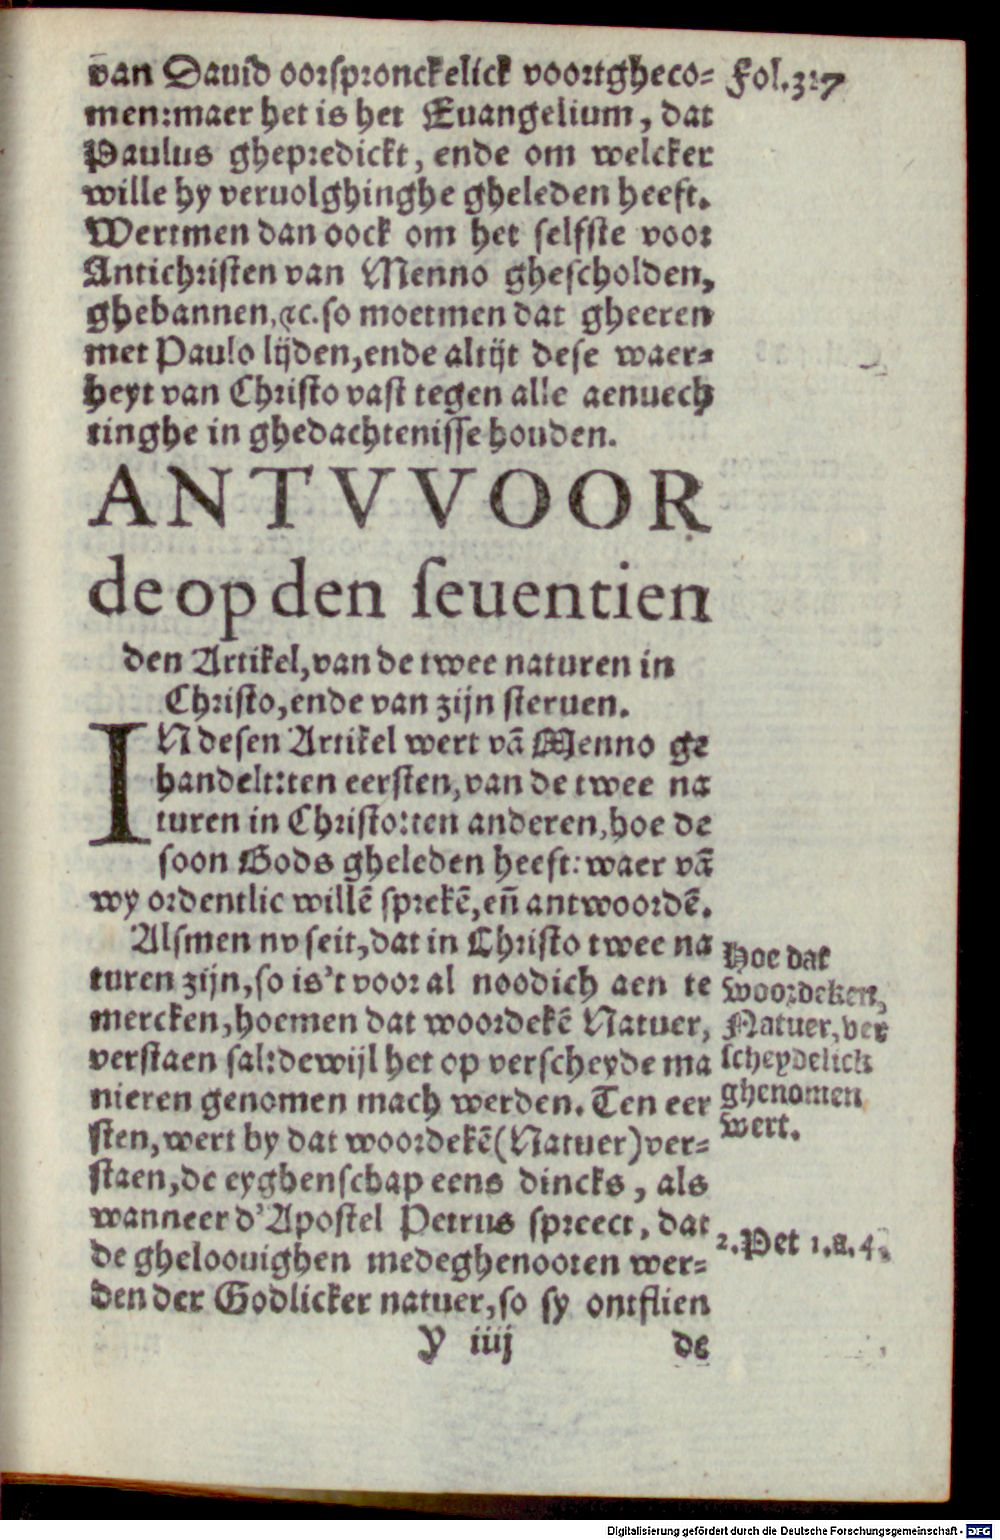 van Dauid oorspronckelick voortgheco-
Fol.327
men:maer het is het Euangelium, dat
Paulus ghepredickt, ende om welcker
wille hy veruolghinghe gheleden heeft.
Wertmen dan oock om het selfste voor
Antichristen van Menno ghescholden,
ghebannen, &c. so moetmen dat gheeren
met Paulo lijden, ende altijt dese waer-
heyt van Christo vast tegen alle aenuech
tinghe in ghedachtenisse houden.
ANTVVOOR
de op den seuentien
den Artikel, van de twee naturen in
Christo, ende van zijn steruen.
IN desen Artikel wert vã Menno ge
handelt: ten eersten, van de twee na
turen in Christo: ten anderen, hoe de
soon Gods gheleden heeft: waer vã
wy ordentlic willẽ sprekẽ, eñ antwoordẽ.
Alsmen nv seit, dat in Christo twee na
turen zijn, so is't voor al noodich aen te
mercken, hoemen dat woordekẽ Natuer,
verstaen sal: dewijl het op verscheyde ma
nieren genomen mach werden. Ten eer
sten, wert by dat woordekẽ (Natuer) ver-
staen, de eyghenschap eens dincks, als
wanneer d'Apostel Petrus spreect, dat
de gheloouighen medeghenooten wer-
den der Godlicker natuer, so sy ontflien
Hoe dat
woordeken,
Natuer, ver
scheydelick
ghenomen
wert.
2. Pet 1. a. 4.
Y iiij
de
Digitalisierung gefördert durch die Deutsche Forschungsgemeinschaft - DFG